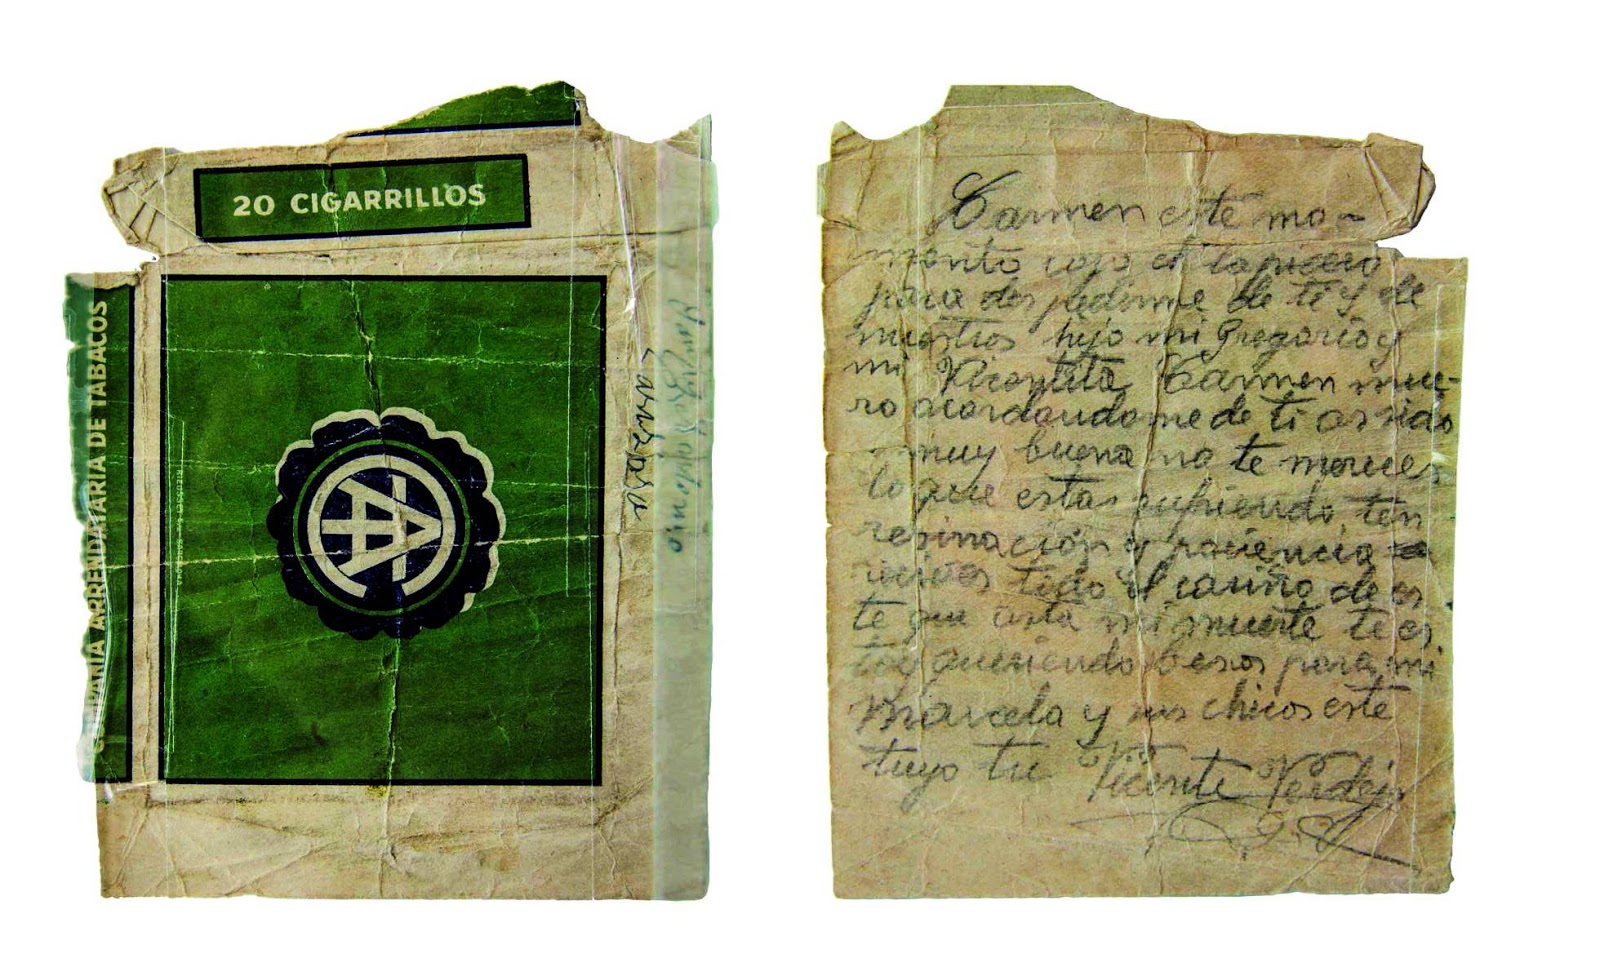 20 CIGARRILLOS
COMPAÑIA ARRENDATARIA DE TABACOS
Carmen este mo-
mento cojo el lapicero
para des pedirme de ti y de
nuestros hijo mi Gregorio y
mi Vicentita Carmen mue-
ro acordandome de ti as sido
muy buena no te mereces
lo que estas sufriendo, ten
resinación y paciencia
recives todo el cariño de es
te que asta mi muerte te es
toy queriendo besos para mi
Marcela y sus chicos este
tuyo tu Vicente Verdejo